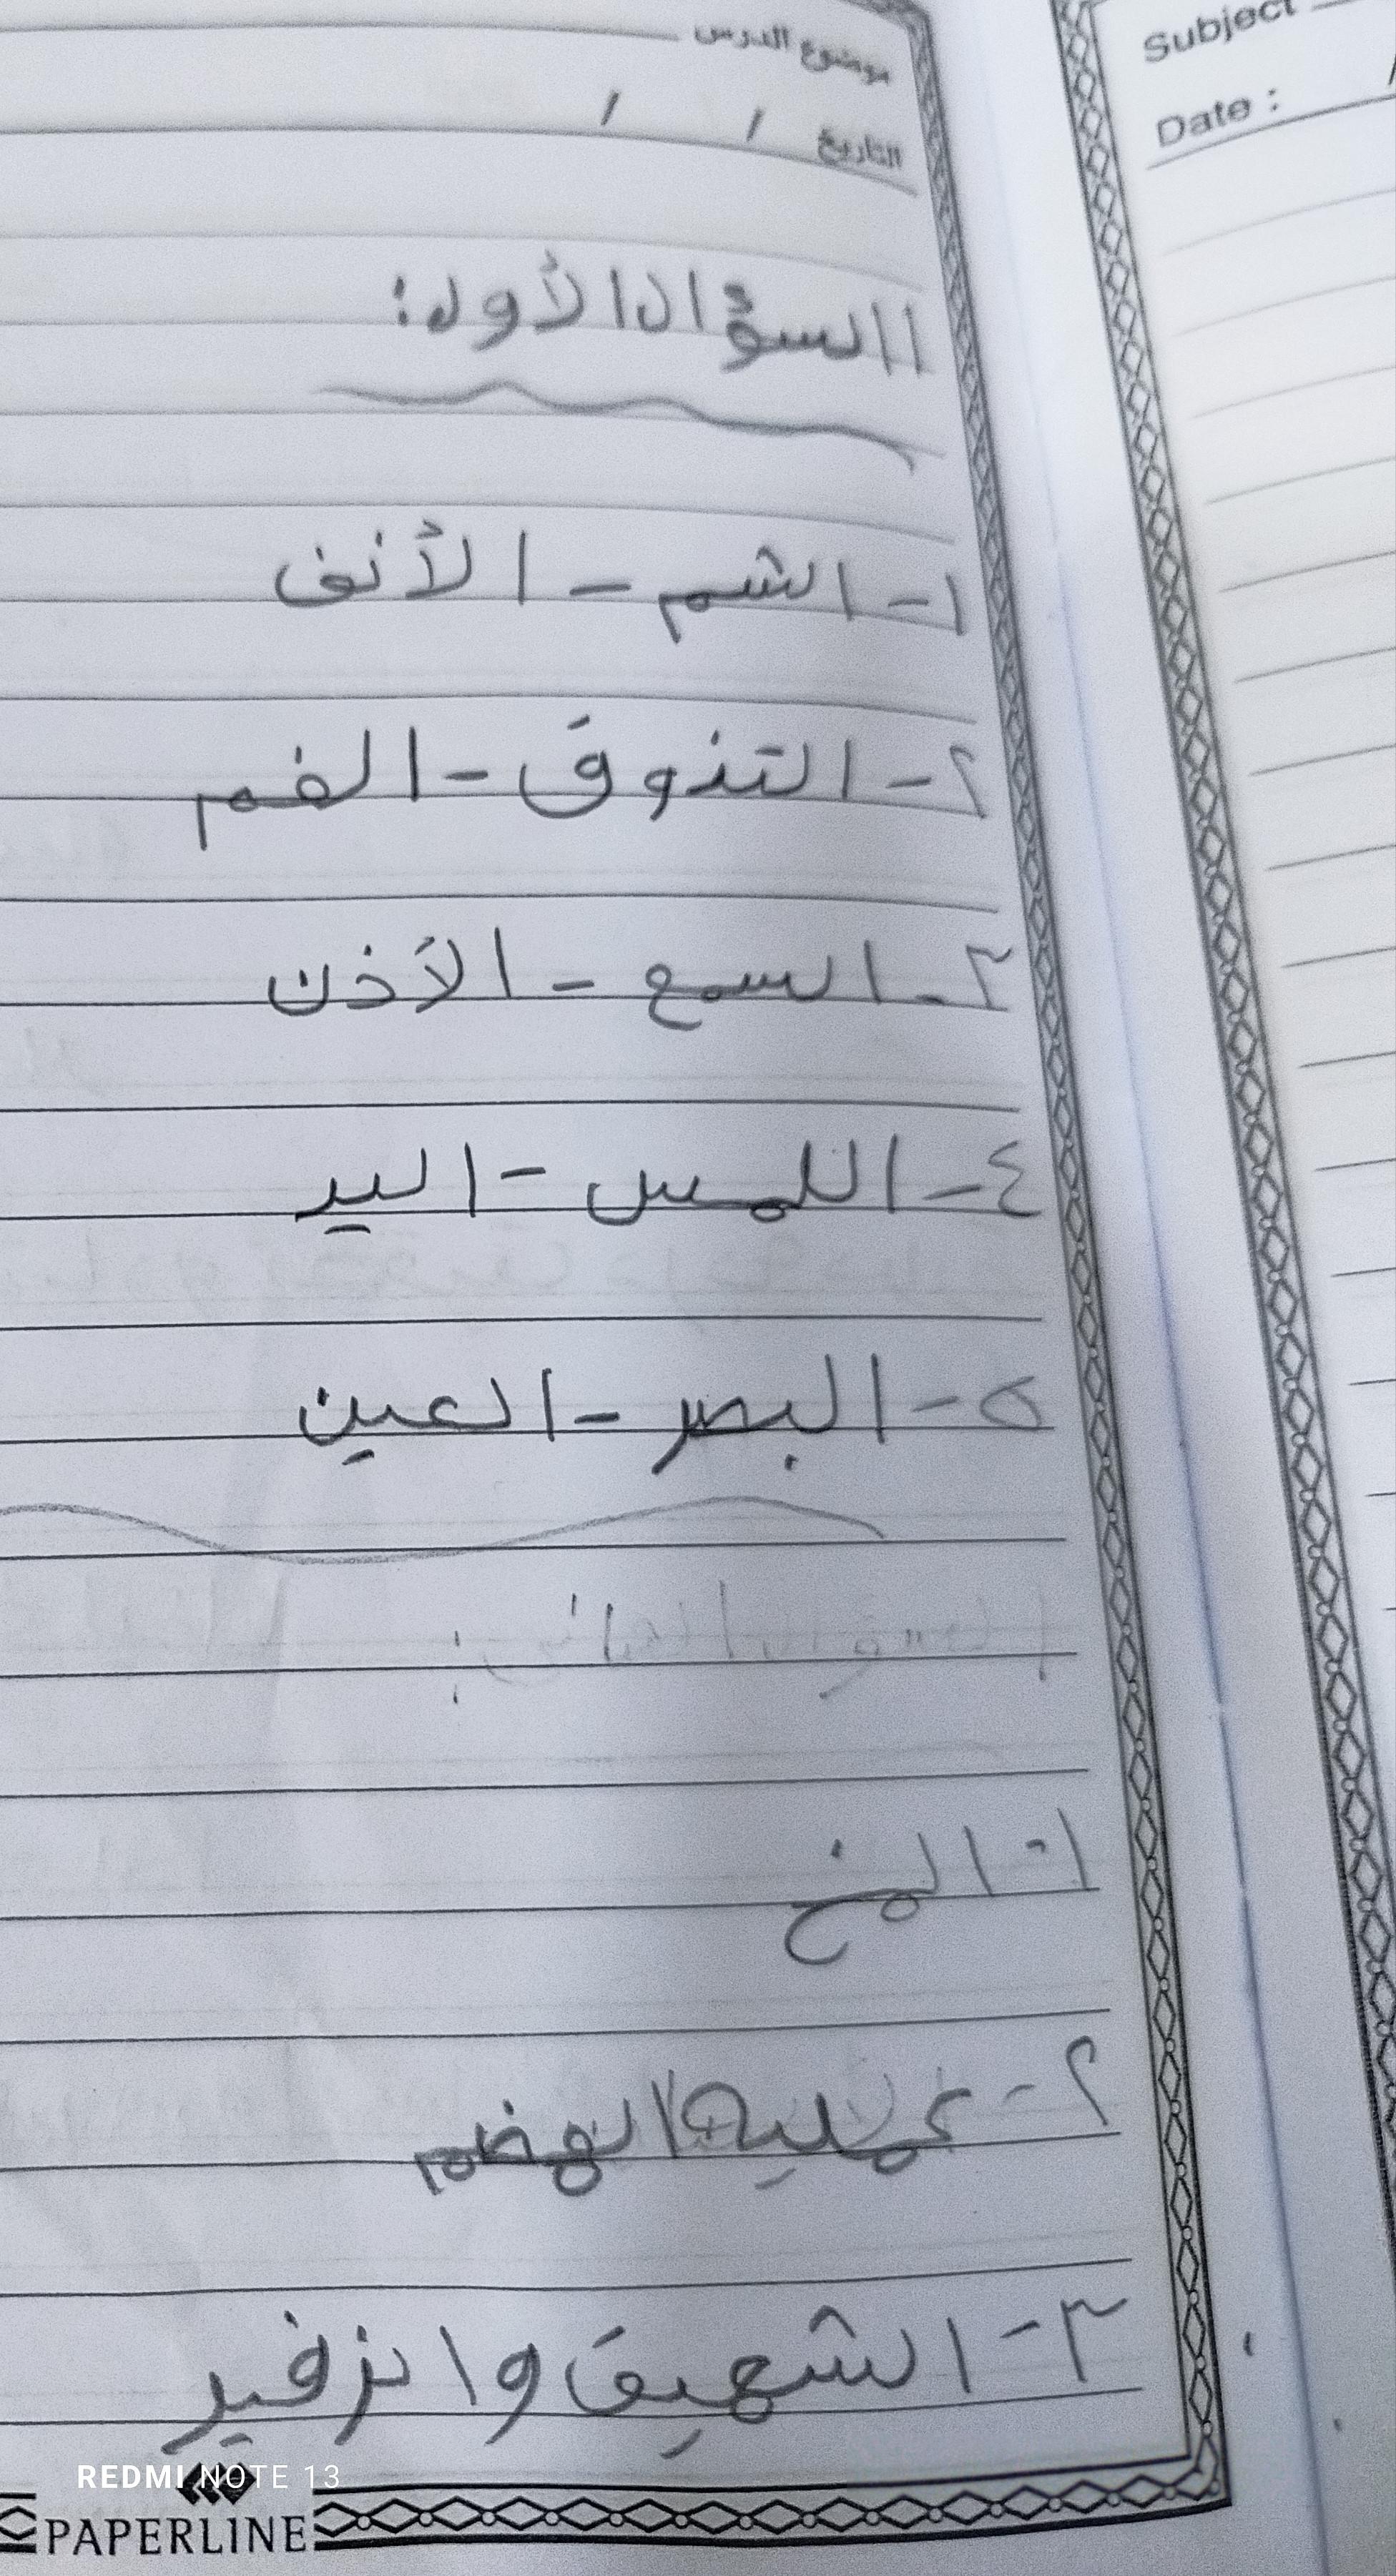 موضوع الدرس
التاريخ / /
Subject
Date : /
السؤال الأول:
١- الشم - الأنف
٢- التذوق - الفم
٣- السمع - الأذن
٤- اللمس - اليد
٥- البصر - العين
السؤال الثاني:
١- المخ
٢- عملية الهضم
٣- الشهيق والزفير
REDMI NOTE 13
PAPERLINE